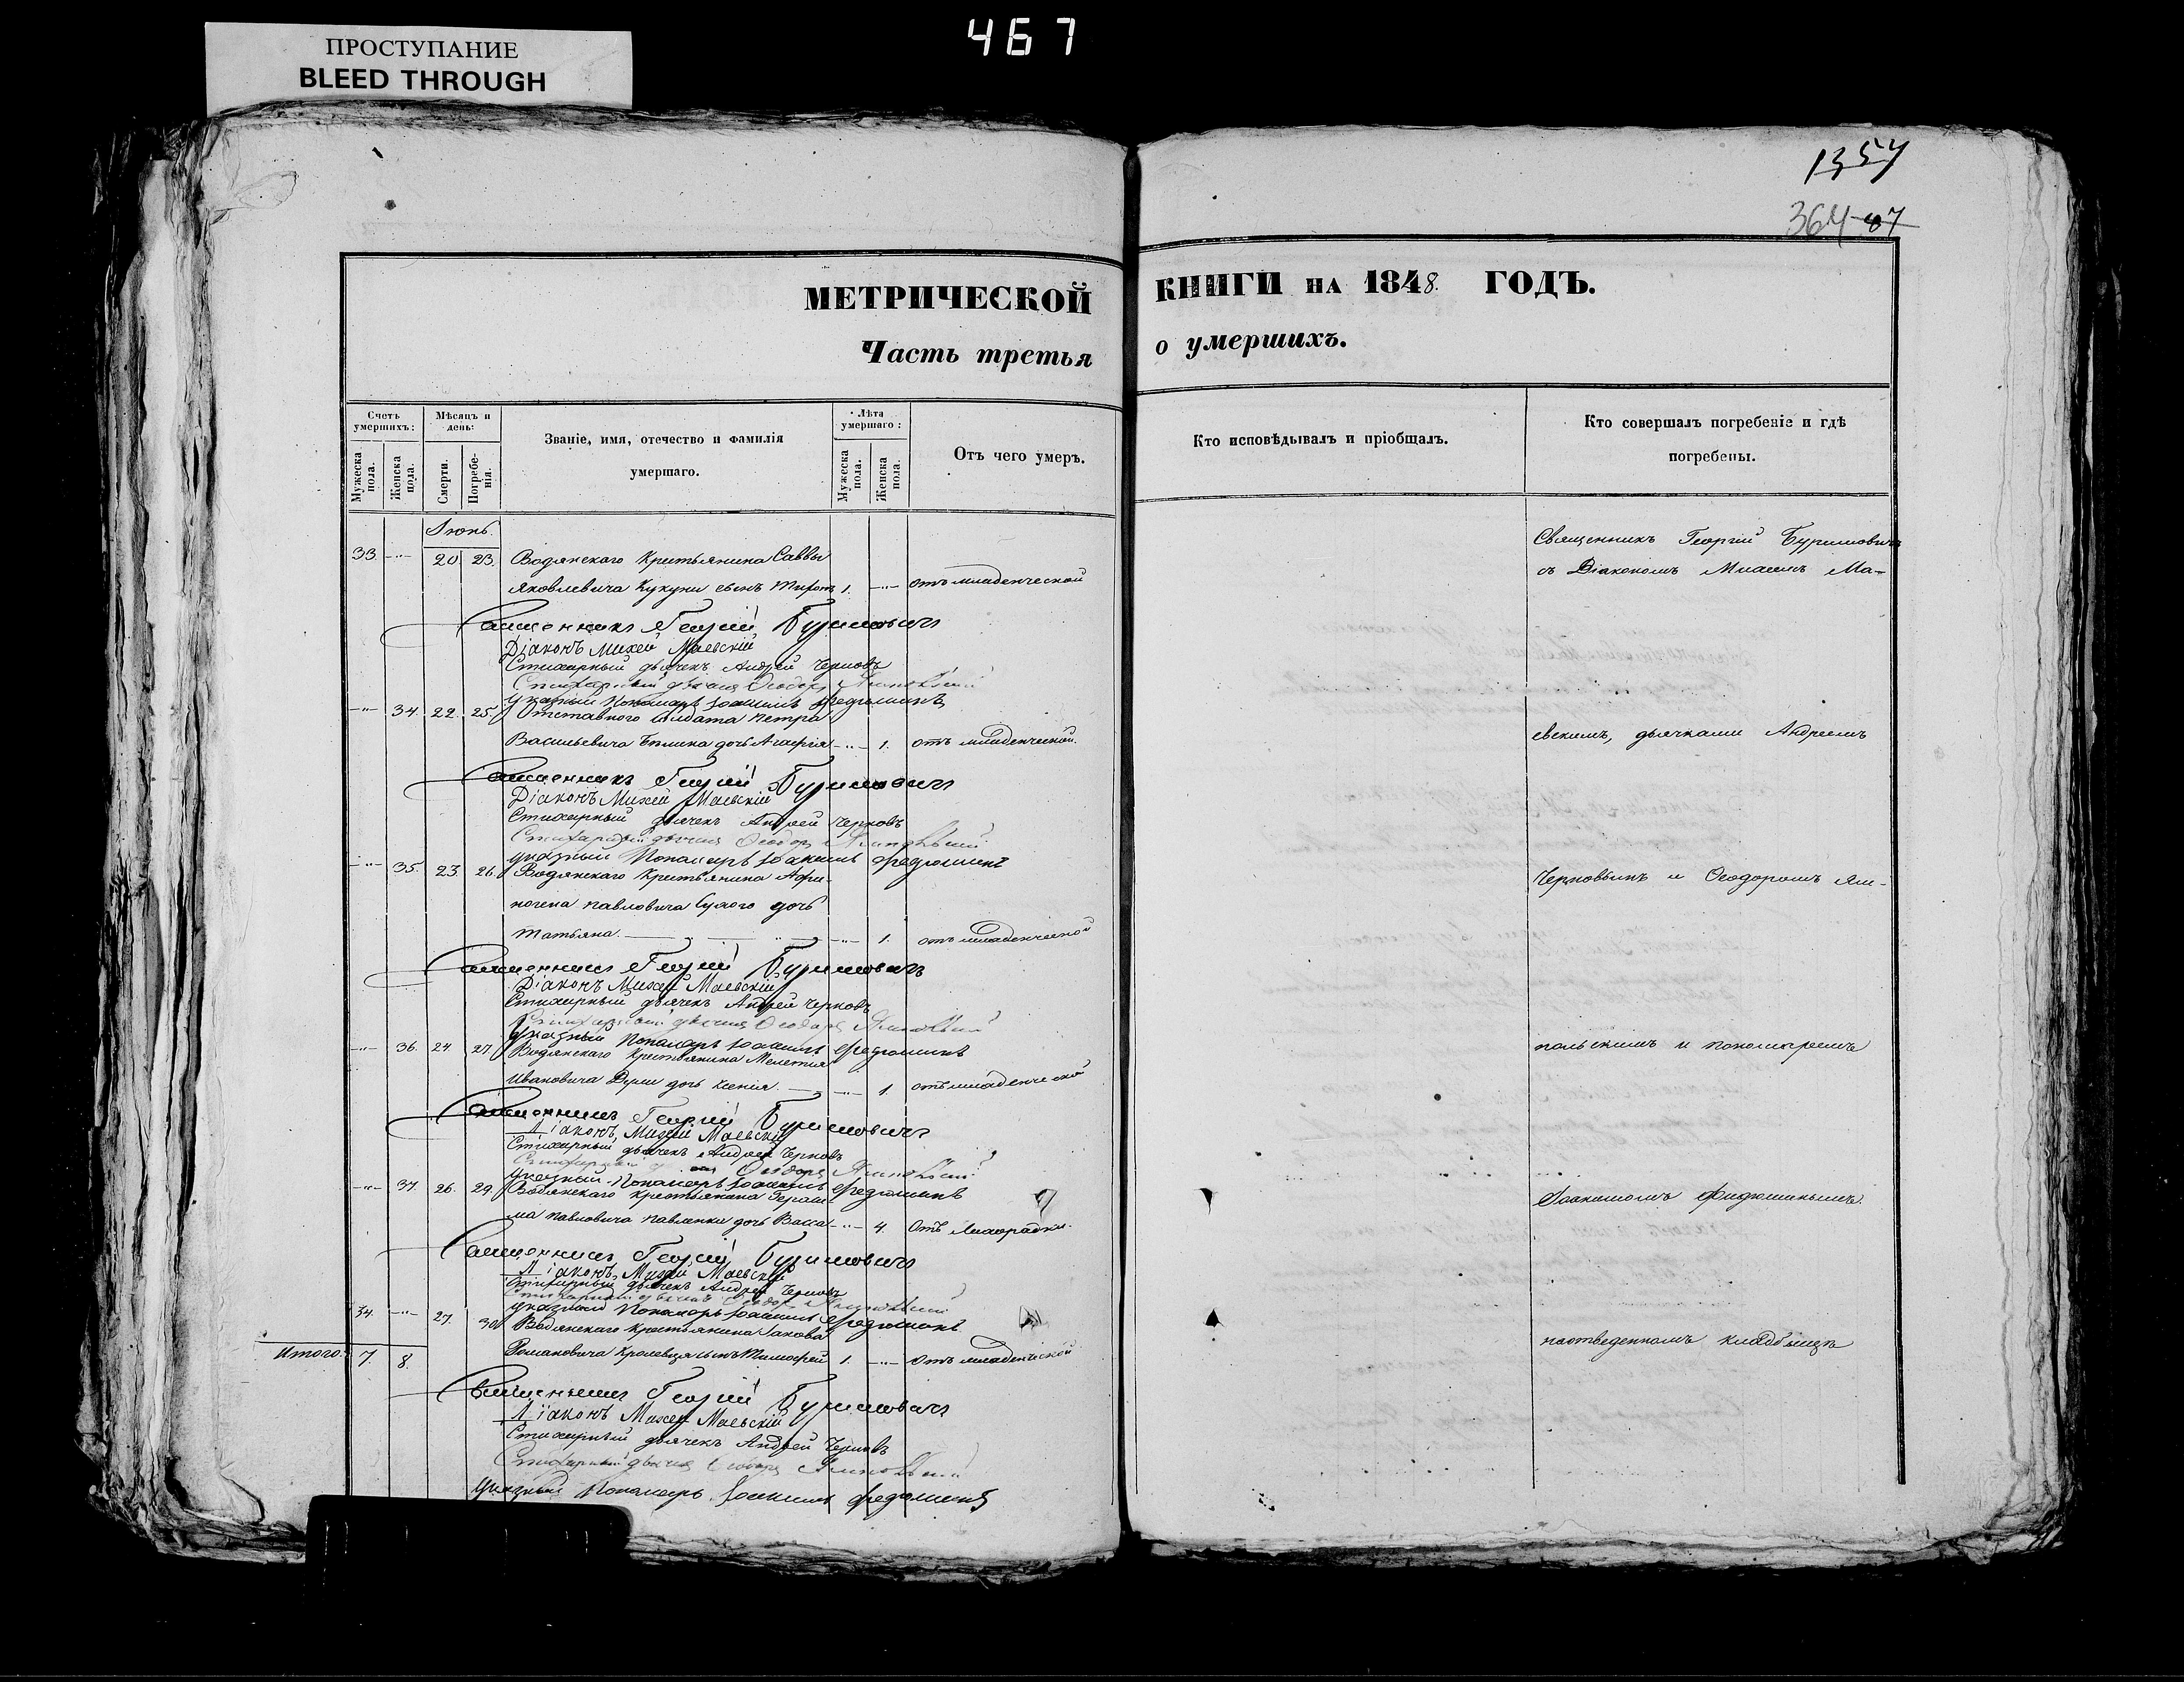 467
ПРОСТУПАНИЕ
BLEED THROUGH
1357
364 87
МЕТРИЧЕСКОЙ КНИГИ НА 1848. ГОДЪ.
Часть третья о умершихъ.
Счетъ умершихъ:
Мѣсяцъ и день:
Званіе, имя, отечество и фамилія умершаго.
Лѣта умершаго:
Отъ чего умеръ.
Кто исповѣдывалъ и пріобщалъ.
Кто совершалъ погребеніе и гдѣ погребены.
Мужеска пола.
Женска пола.
Смерти.
Погребенія.
Мужеска пола.
Женска пола.
Іюнь.
33. -"- 20 23. Водянскаго Крестьянина Саввы
Яковлевича Кукуни сынъ 1. -"- отъ младенческой
Священникъ Георгій Буримовичъ
Діаконъ Михей Маевскій
Стихарный дьячекъ Андрей Черновъ
Стихарный дьячекъ Ѳеодоръ Ямпольскій
Указный Пономарь Іоакимъ Федюшинъ
-"- 34. 22. 25. Отставного Солдата Петра
Васильевича дочь Агафія -"- 1. отъ младенческой.
Священникъ Георгій Буримовичъ
Діаконъ Михей Маевскій
Стихарный дьячекъ Андрей Черновъ
Стихарный дьячекъ Ѳеодоръ Ямпольскій
Указный Пономарь Іоакимъ Федюшинъ
-"- 35. 23. 26. Водянскаго Крестьянина Афи-
ногена Павловича Сухого дочь
Татьяна. -"- 1. отъ младенческой
Священникъ Георгій Буримовичъ
Діаконъ Михей Маевскій
Стихарный дьячекъ Андрей Черновъ
Стихарный дьячекъ Ѳеодоръ Ямпольскій
Указный Пономарь Іоакимъ Федюшинъ
-"- 36. 24. 27. Водянскаго Крестьянина Мелетія
Ивановича дочь Ксенія. -"- 1. отъ младенческой
Священникъ Георгій Буримовичъ
Діаконъ Михей Маевскій
Стихарный дьячекъ Андрей Черновъ
Стихарный Ѳеодоръ Ямпольскій
Указный Пономарь Іоакимъ Федюшинъ
-"- 37. 26. 29. Водянскаго Крестьянина Гераси
ма Павловича Павленки дочь Васса -"- 4. Отъ Лихорадки.
Священникъ Георгій Буримовичъ
Діаконъ Михей Маевскій
Стихарный дьячекъ Андрей Черновъ
Стихарный дьячекъ Ѳеодоръ Ямпольскій
Указный Пономарь Іоакимъ Федюшинъ
34. -"- 27. 30. Водянскаго Крестьянина Іакова
Романовича Кролевца сынъ Тимофей 1. -"- Отъ младенческой
Итого. 7. 8.
Священникъ Георгій Буримовичъ
Діаконъ Михей Маевскій
Стихарный дьячекъ Андрей Черновъ
Стихарный дьячекъ Ѳеодоръ Ямпольскій
Указный Пономарь Іоакимъ Федюшинъ
Священникъ Георгій Буримовичъ
съ Діакономъ Михеемъ Ма-
евскимъ, дьячками Андреемъ
Черновымъ и Ѳеодоромъ Ям-
польскимъ и пономаремъ
Іоакимомъ Федюшинымъ.
на отведенномъ кладбищѣ